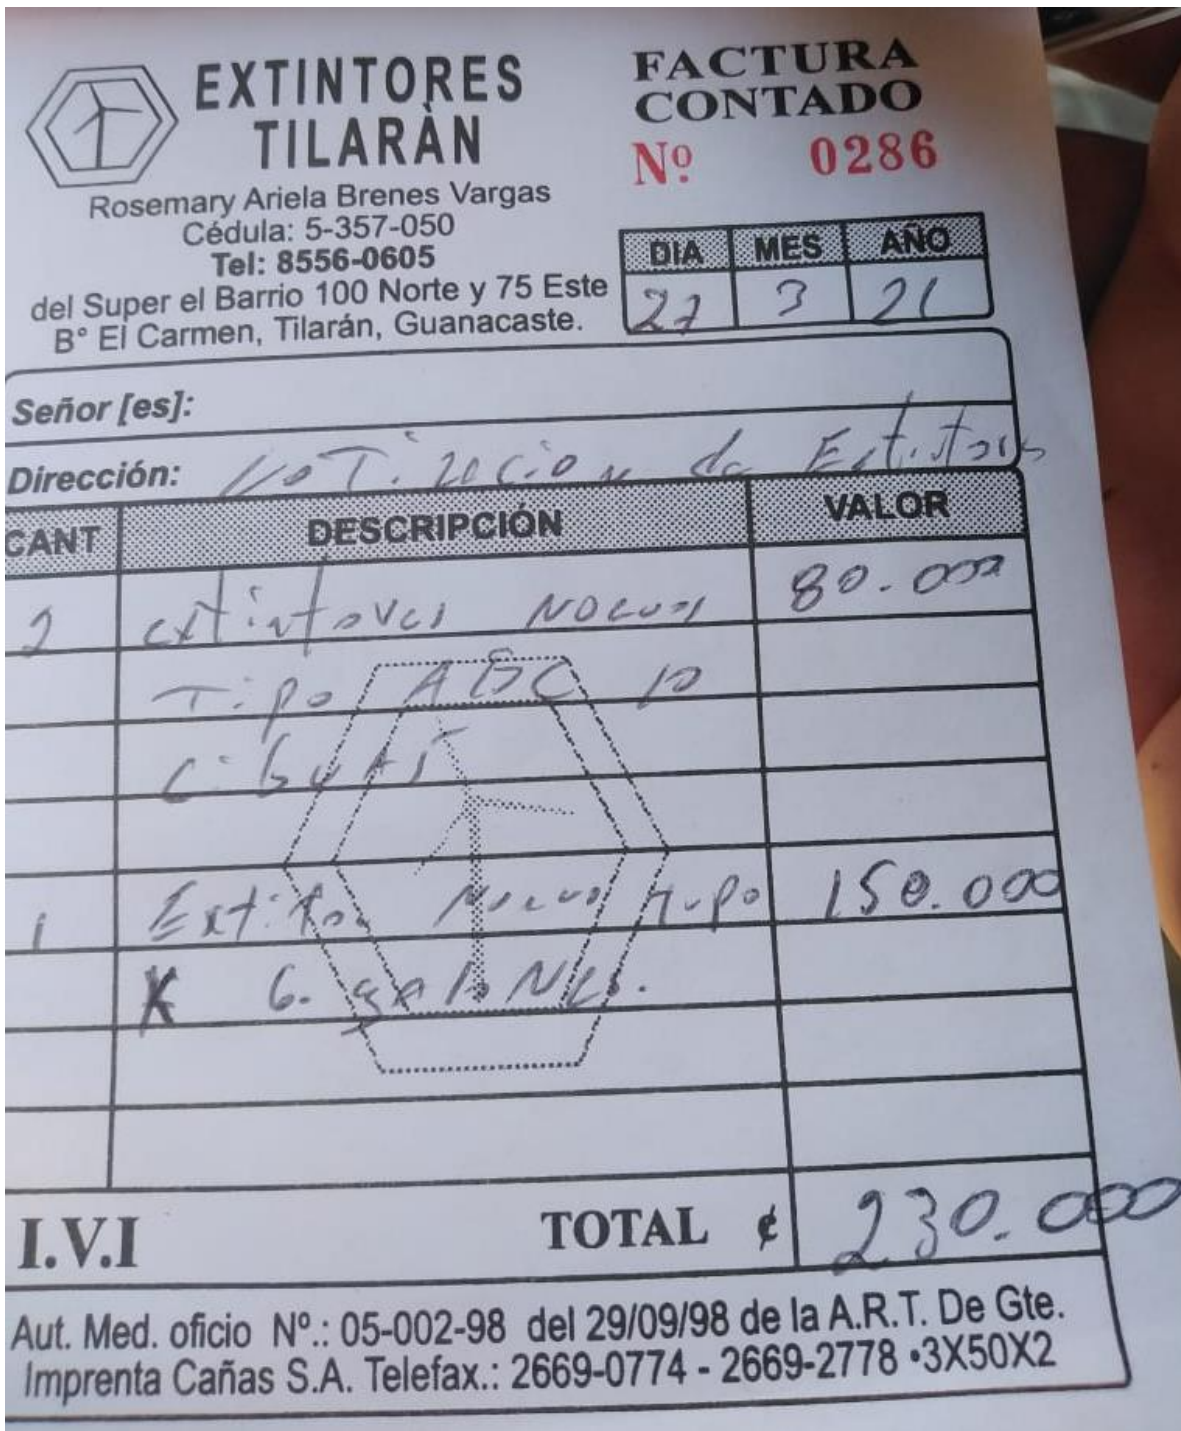 EXTINTORES
TILARÀN
Rosemary Ariela Brenes Vargas
Cédula: 5-357-050
Tel: 8556-0605
del Super el Barrio 100 Norte y 75 Este
B° El Carmen, Tilarán, Guanacaste.
FACTURA
CONTADO
Nº 0286
DIA MES AÑO
27 3 21
Señor [es]:
Dirección: Cotizacion de Extitores
CANT DESCRIPCIÓN VALOR
2 extintores Nocuos 80.000
Tipo ABC 10
Libras
1 Extitor Nuevo tipo 150.000
K 6. galones.
I.V.I TOTAL ¢ 230.000
Aut. Med. oficio Nº.: 05-002-98 del 29/09/98 de la A.R.T. De Gte.
Imprenta Cañas S.A. Telefax.: 2669-0774 - 2669-2778 •3X50X2